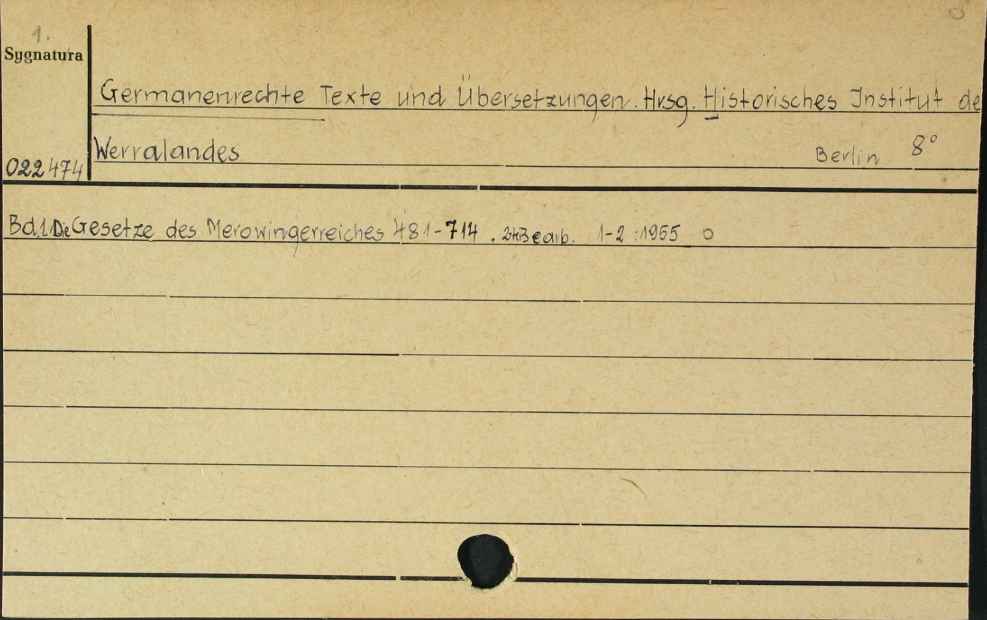 1.
Sygnatura
Germanenrechte Texte und Übersetzungen. Hrsg. Historisches Institut de
Werralandes Berlin 8°
022474
Bd.1. Die Gesetze des Merowingerreiches 481-714. Bearb. 1-2 :1955 0